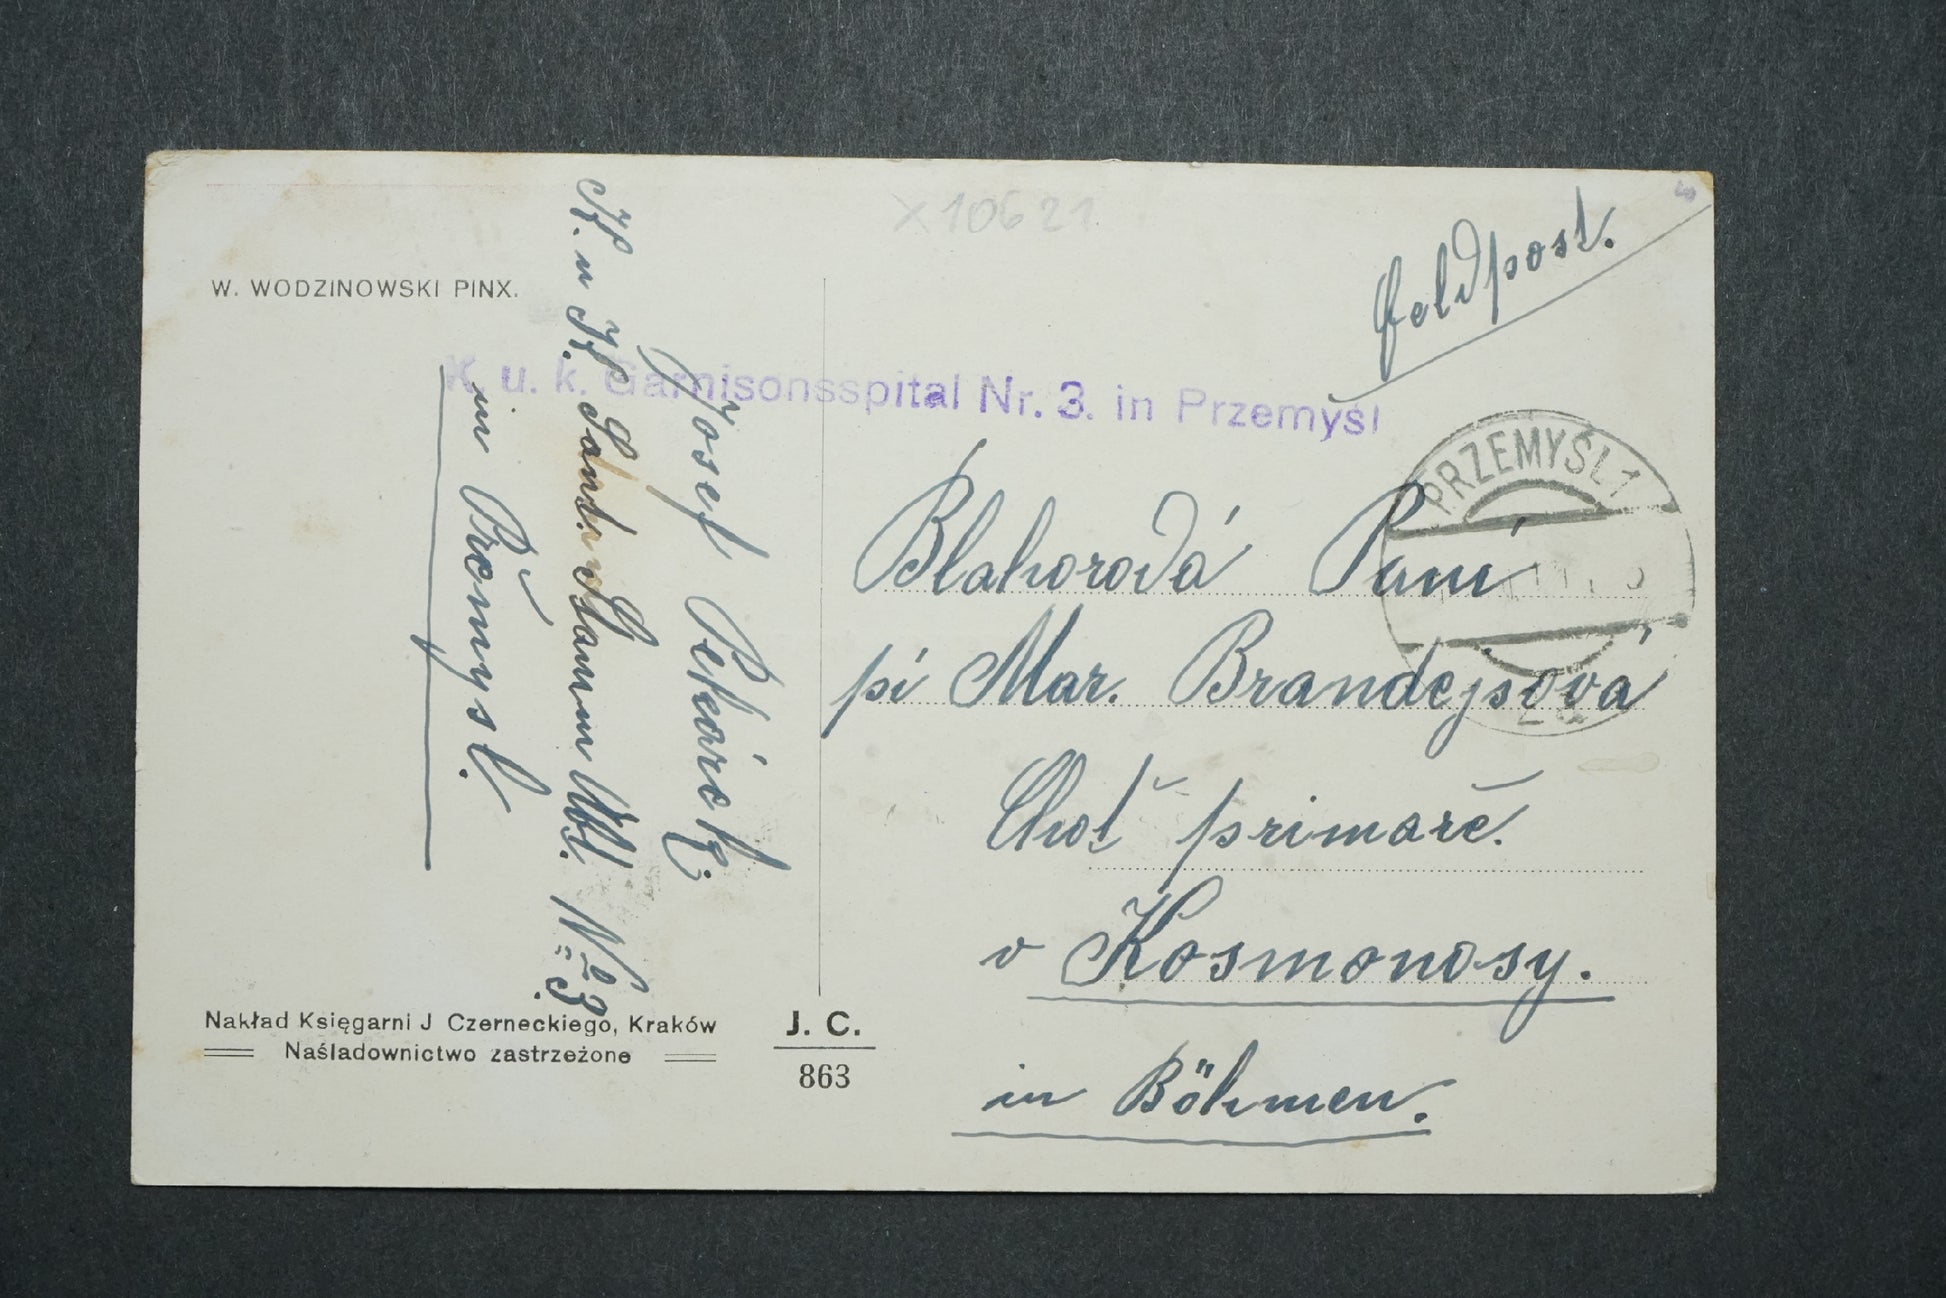 X10621
Feldpost.
W. WODZINOWSKI PINX.
K. u. k. Garnisonsspital Nr. 3. in Przemyśl
PRZEMYŚL 1
Blahorodá Paní
pí Mar. Brandejsová
Choť primářč.
v Kosmonosy.
in Böhmen.
Josef Pekárek.
K. u K. Sanit. Nº 3.
in Přemysl.
Nakład Księgarni J Czerneckiego, Kraków
Naśladownictwo zastrzeżone
J. C.
863